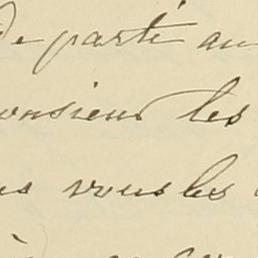 De parté au
onsieur les
us vous les
à